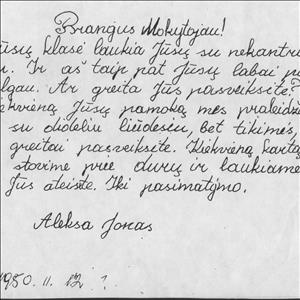 Brangus Mokytojau!
ūsų klasė laukia Jūsų su nekantru
u. Ir aš taip pat Jūsų labai pa
lgau. Ar greita Jūs pasveiksite?
iekvieną Jūsų pamoką mes praleidž
su dideliu liūdesiu, bet tikimės,
greitai pasveiksite. Kiekvieną kartą
stovime prie durų ir laukiame
Jūs ateisite. Iki pasimatymo.
Aleksa Jonas
1950. 11. 12